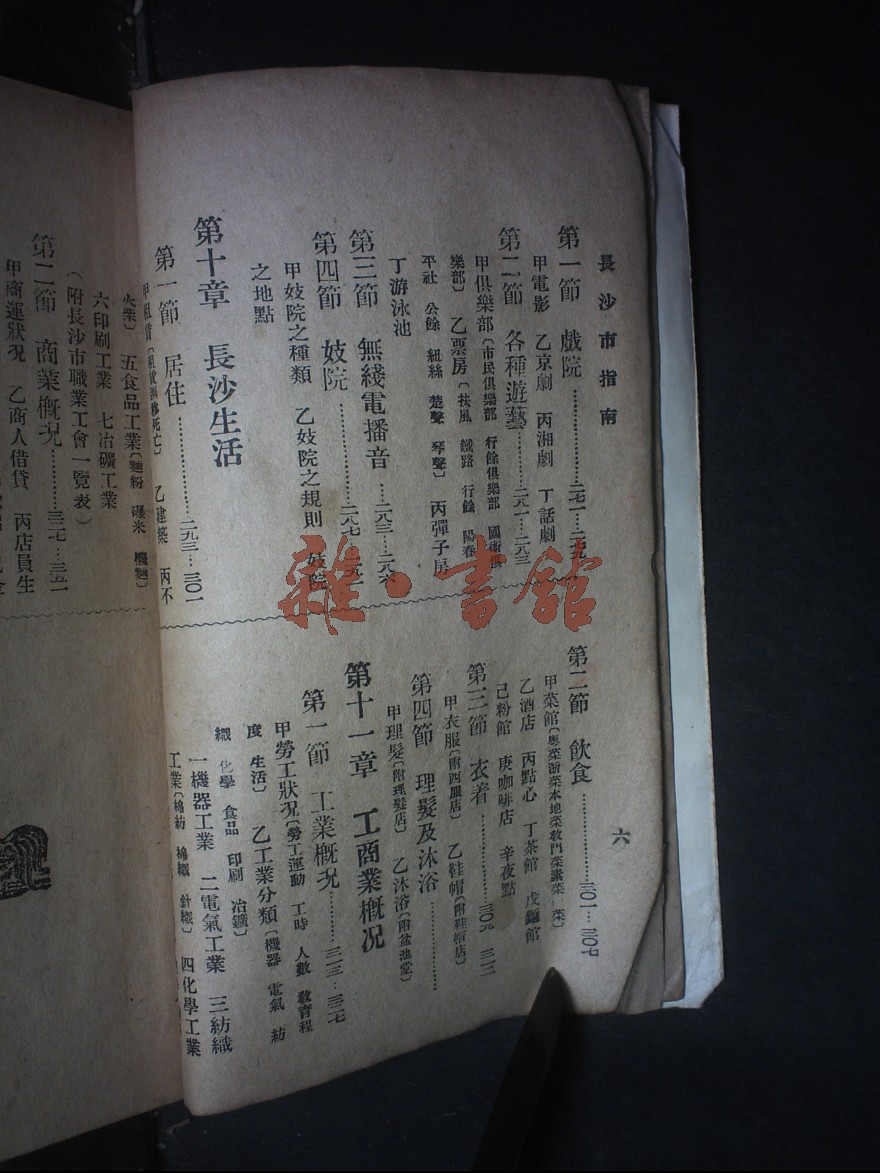 長沙市指南
六
第一節 戲院……二七一…二七九
甲電影 乙京劇 丙湘劇 丁話劇
第二節 各種遊藝……二八一…二八三
甲俱樂部〔市民俱樂部 行餘俱樂部 國術俱
樂部〕 乙票房〔扶風 鐵路 行餘 陽春
平社 公餘 紐絲 楚聲 琴聲〕 丙彈子房
丁游泳池
第三節 無綫電播音…二八三…二八六
第四節 妓院……二八七…二九一
甲妓院之種類 乙妓院之規則 妓院
之地點
第十章 長沙生活
第一節 居住……二九三…三〇一
甲租賃 乙建築 丙不
第二節 飲食……三〇一…三〇七
甲菜館〔粵菜浙菜本地菜教門菜素菜 菜〕
乙酒店 丙點心 丁茶館 戊麵館
己粉館 庚咖啡店 辛夜點
第三節 衣着……三〇九 三一二
甲衣服〔附西服店〕 乙鞋帽〔附鞋帽店〕
第四節 理髮及沐浴……
甲理髮〔附理髮店〕 乙沐浴〔附盆池堂〕
第十一章 工商業概况
第一節 工業概况……三一三…三二七
甲勞工狀况〔勞工運動 工時 人數 教育程
度 生活〕 乙工業分類〔機器 電氣 紡
織 化學 食品 印刷 冶鑛〕
一機器工業 二電氣工業 三紡織
工業〔棉紡 棉織 針織〕 四化學工業
火柴〕 五食品工業〔麵粉 碾米 機麵〕
六印刷工業 七冶礦工業
（附長沙市職業工會一覽表）
第二節 商業概况……三二七…三五一
甲商運狀况 乙商人借貸 丙店員生
雜·書館